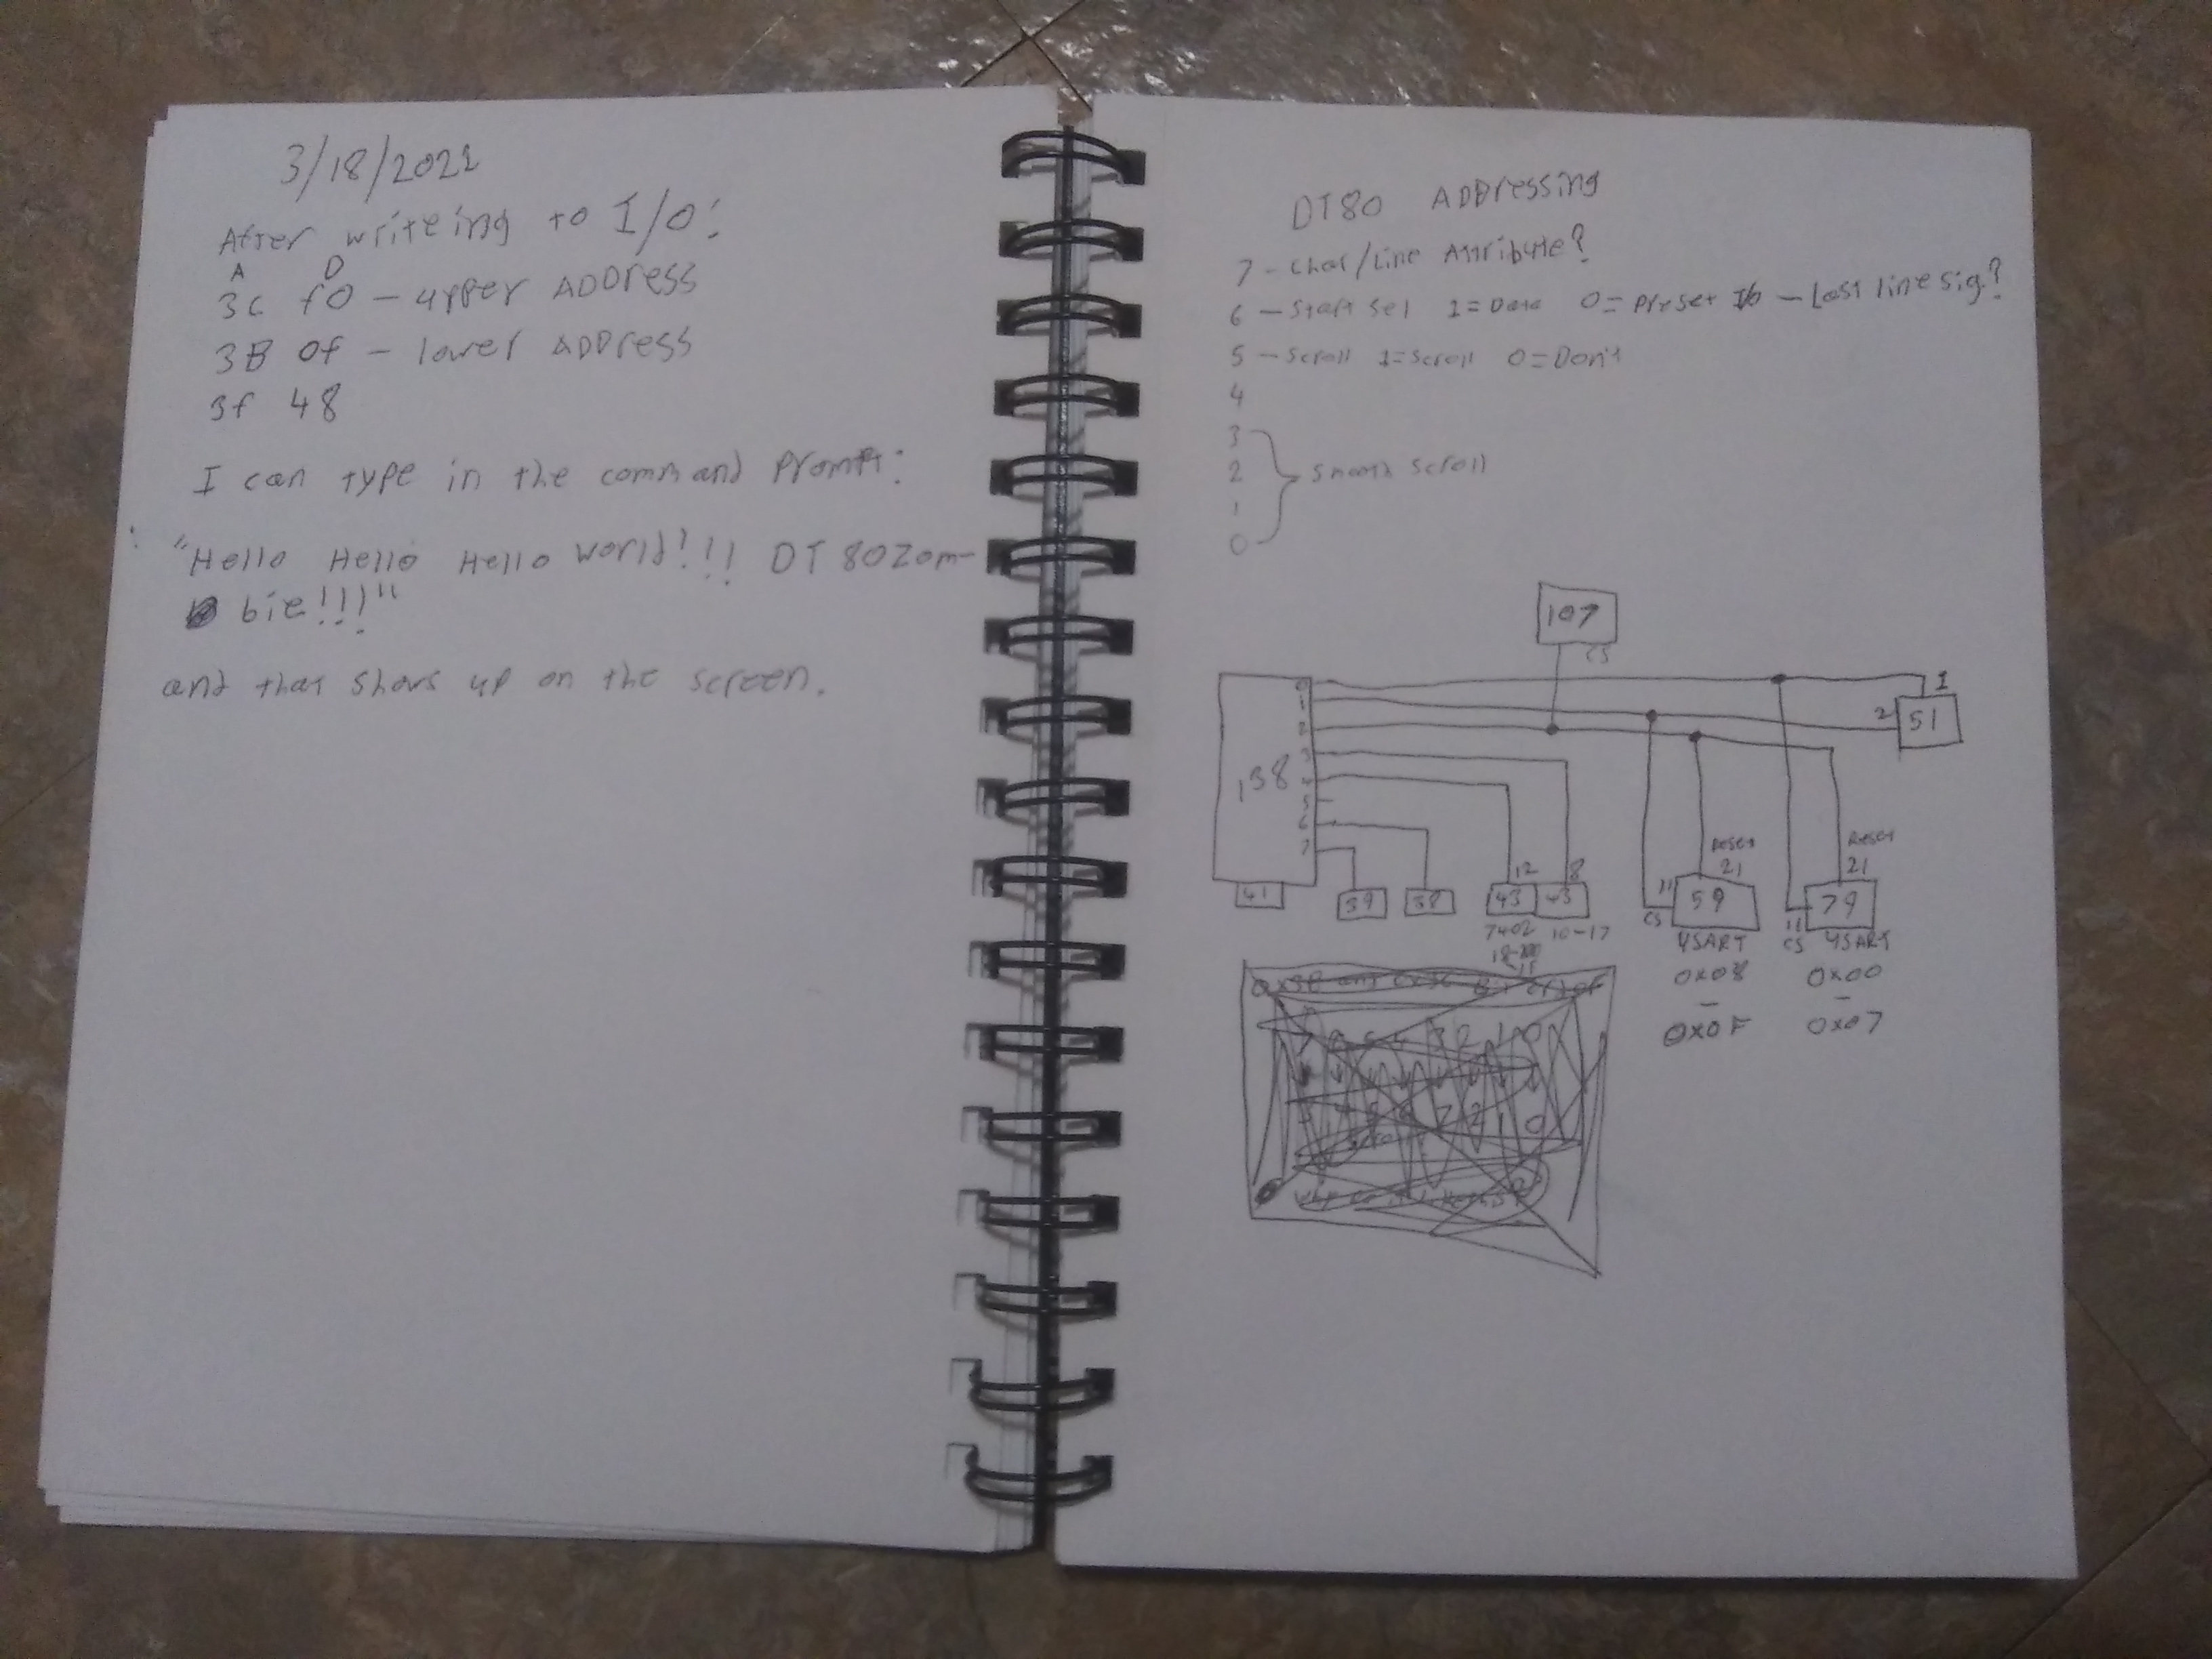 3/18/2023
After writeing to I/O:
A D
3C f0 - upper ADDress
3B Of - lower ADDress
3f 48
I can type in the command Prompt:
: "Hello Hello Hello Hello world!!! DT80zom-
bie!!!!"
and that shows up on the screen.
DT80 ADDressing
7 - char/Line Attribute?
6 - Start sel 1=Data 0=preset - Last line sig?
5 - scroll 1=scroll 0=Don't
4
3
2
1
0
smooth scroll
138
0
1
2
3
4
5
6
7
41
39
107
CS
12
43
8
43
7402
10-17
11
CS
59
21
Reset
USART
0x08
-
0x0F
11
CS
79
21
Reset
USART
0x00
-
0x07
2
51
1